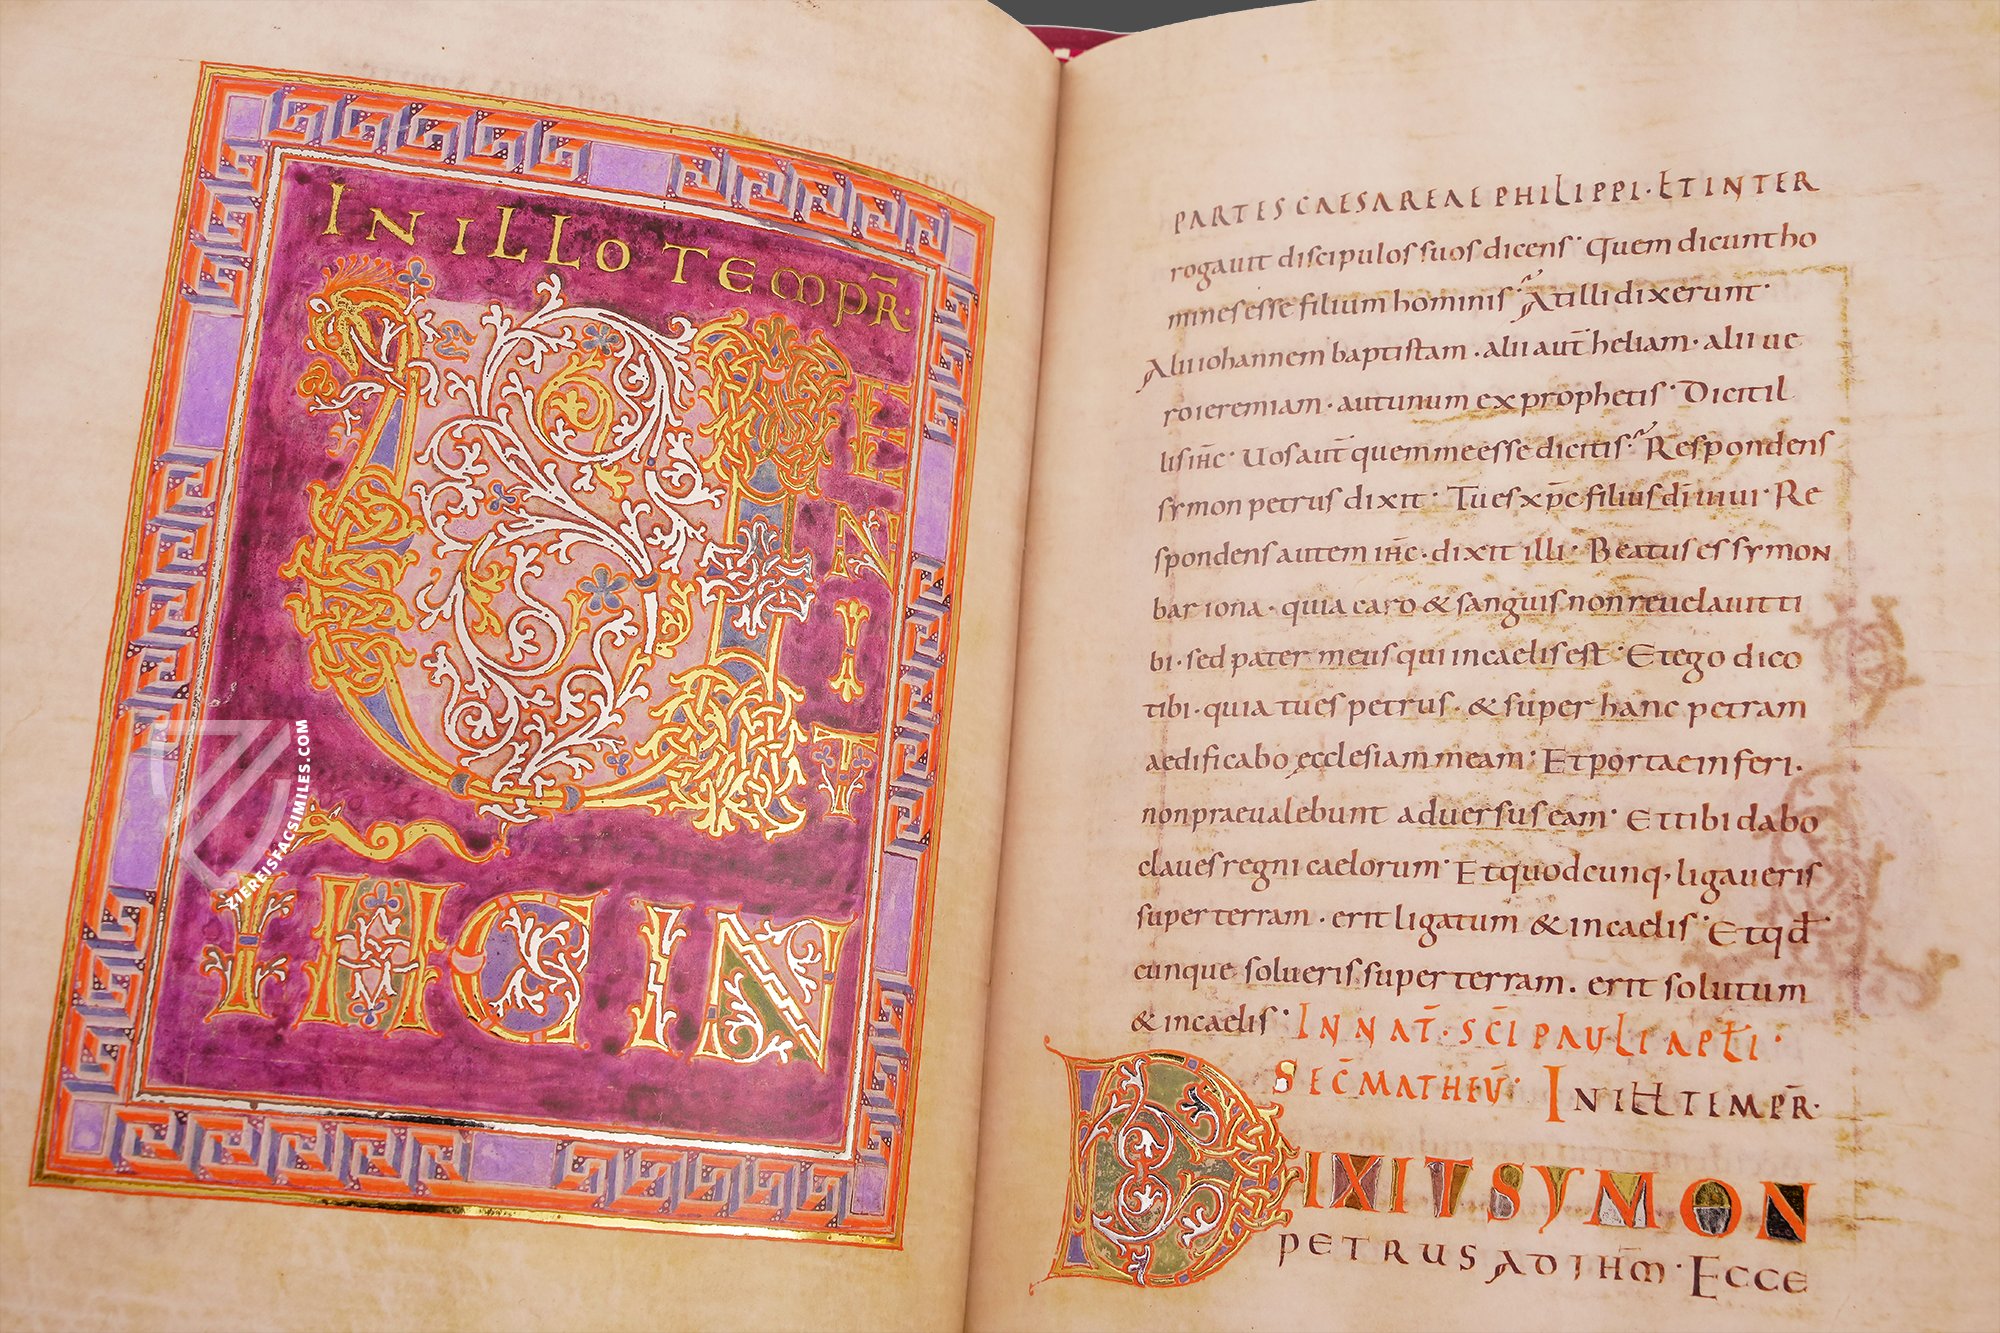 IN ILLO TEMPR̄·
VENIT
IHC IN
PARTES CAESAREAE PHILIPPI· ET INTER
rogauit discipulos suos dicens· Quem dicunt ho
mines esse filium hominis· At illi dixerunt·
Alii iohannem baptistam· alii aut̄ heliam· alii ue
ro ieremiam· aut unum ex prophetis· Dicit il
lis ih̄c· Uos aut̄ quem me esse dicitis· Respondens
symon petrus dixit· Tu es xp̄c filius dī uiui· Re
spondens autem ih̄c· dixit illi· Beatus es symon
bar iona· quia caro & sanguis non reuelauit ti
bi· sed pater meus qui in caelis est· Et ego dico
tibi· quia tu es petrus· & super hanc petram
aedificabo ecclesiam meam· Et portae inferi·
non praeualebunt aduersus eam· Et tibi dabo
claues regni caelorum· Et quodcunq, ligaueris
super terram· erit ligatum & in caelis· Et qd̄
cunque solueris super terram. erit solutum
& in caelis· IN NAT̄· SC̄I PAULI APŁI·
SEC̄ MATHEŪ· IN ILL TEMPR̄·
DIXIT SYMON
PETRUS AD IHM̄· ECCE
ZIEREISFACSIMILES.COM